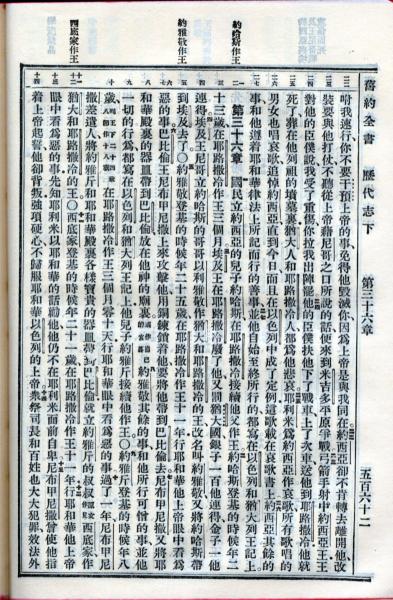 舊約全書 歷代志下 第三十六章 五百六十二
咐我速行你不要干預上帝的事免得他毀滅你因爲上帝是與我同在約西亞卻不肯轉去離開他改
裝要與他打仗不聽從上帝藉尼哥之口所說的話便來到米吉多平原爭戰弓箭手射中約西亞王王
對他的臣僕說我受了重傷你拉我出陣罷他的臣僕扶他下了戰車上了次車送他到耶路撒冷他就
死了葬在他列祖的墳墓裏猶大人和耶路撒冷人都爲他悲哀耶利米爲約西亞作哀歌所有歌唱的
男女也唱哀歌追悼約西亞直到今日而且在以色列中成了定例這歌載在哀歌書上約西亞其餘的
事和他遵着耶和華律法上所記而行的善事並他自始至終所行的都寫在以色列和猶大列王記上
約哈斯作王
第三十六章 國民立約西亞的兒子約哈斯在耶路撒冷接續他父作王約哈斯登基的時候年二
十三歲在耶路撒冷作王三個月埃及王在耶路撒冷廢了他又罰猶大國銀子一百他連得金子一他
連得埃及王尼哥立約哈斯的哥哥以利雅敬作猶大和耶路撒冷的王改名叫約雅敬又將約哈斯帶
約雅敬作王
到埃及去了○約雅敬登基的時候年二十五歲在耶路撒冷作王十一年行耶和華他上帝眼中看爲
惡的事巴比倫王尼布甲尼撒上來攻擊他用銅鍊鎖着他要將他帶到巴比倫去尼布甲尼撒又將耶
和華殿裏的器皿帶到巴比倫放在他神的廟裏約雅敬其餘的事和他所行可憎的事並他
一切的行爲都寫在以色列和猶大列王記上他兒子約雅斤接續他作王○約雅斤登基的時候年八
歲在耶路撒冷作王三個月零十天行耶和華眼中看爲惡的事過了一年尼布甲尼
撒差遣人將約雅斤和耶和華殿裏各樣寶貴的器皿帶到巴比倫就立約雅斤的叔叔西底家作
西底家作王
猶大和耶路撒冷的王○西底家登基的時候年二十一歲在耶路撒冷作王十一年行耶和華他上帝
眼中看爲惡的事先知耶利米以耶和華的話勸他他仍不在耶利米面前自卑尼布甲尼撒曾使他指
着上帝起誓他卻背叛強項硬心不歸服耶和華以色列的上帝衆祭司長和百姓也大大犯罪效法外